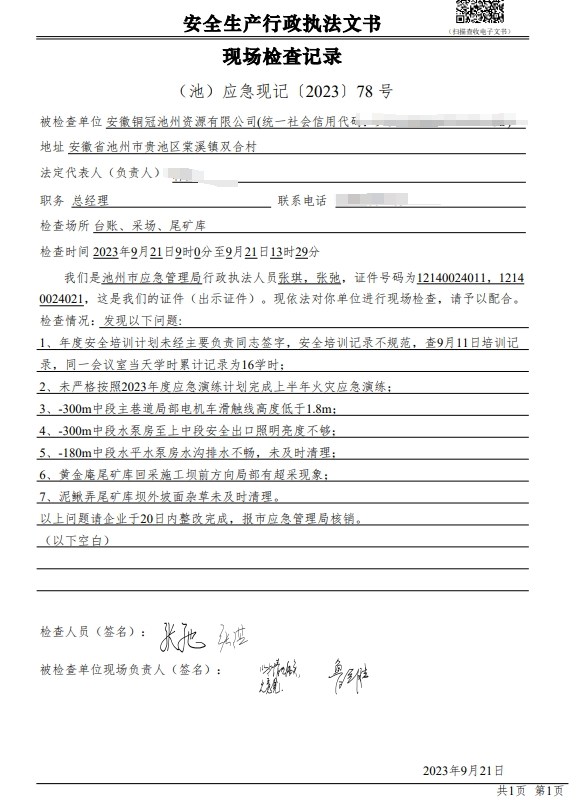 安全生产行政执法文书
（扫描查收电子文书）
现场检查记录
（池）应急现记〔2023〕78 号
被检查单位 安徽铜冠池州资源有限公司(统一社会信用代码:
地址 安徽省池州市贵池区棠溪镇双合村
法定代表人（负责人）
职务 总经理 联系电话
检查场所 台账、采场、尾矿库
检查时间 2023年9月21日9时0分至9月21日13时29分
我们是池州市应急管理局行政执法人员张琪，张弛，证件号码为12140024011，1214
0024021，这是我们的证件（出示证件）。现依法对你单位进行现场检查，请予以配合。
检查情况：发现以下问题:
1、年度安全培训计划未经主要负责同志签字，安全培训记录不规范，查9月11日培训记
录，同一会议室当天学时累计记录为16学时；
2、未严格按照2023年度应急演练计划完成上半年火灾应急演练；
3、-300m中段主巷道局部电机车滑触线高度低于1.8m；
4、-300m中段水泵房至上中段安全出口照明亮度不够；
5、-180m中段水平水泵房水沟排水不畅，未及时清理；
6、黄金庵尾矿库回采施工坝前方向局部有超采现象；
7、泥鳅弄尾矿库坝外坡面杂草未及时清理。
以上问题请企业于20日内整改完成，报市应急管理局核销。
（以下空白）
检查人员（签名）： 张弛 张琪
被检查单位现场负责人（签名）：
2023年9月21日
共1页 第1页